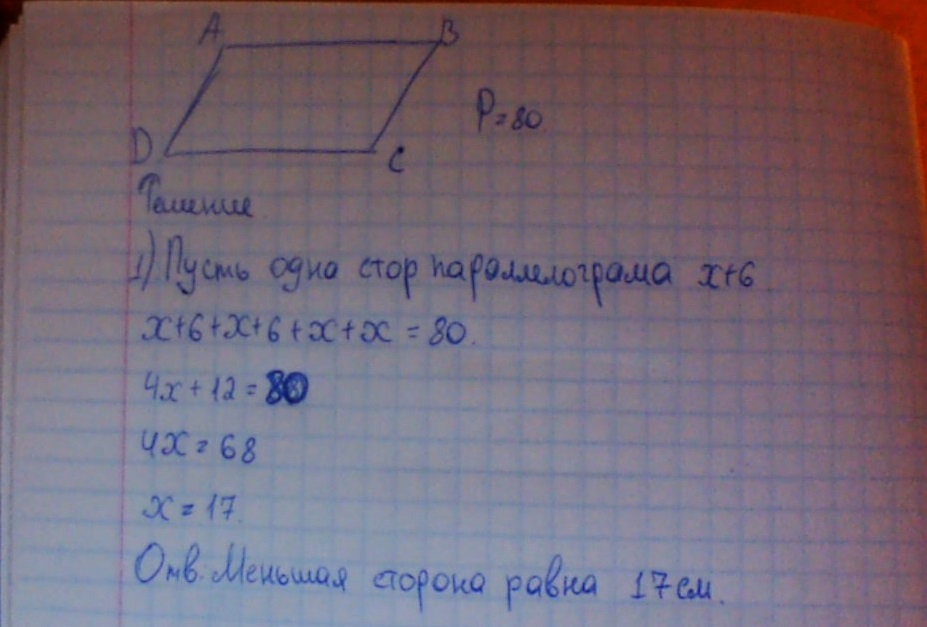 A B
P=80
D C
Решение
1) Пусть одна стор параллелограма x+6
x+6+x+6+x+x=80.
4x+12=80
4x=68
x=17.
Отв. Меньшая сторона равна 17 см.